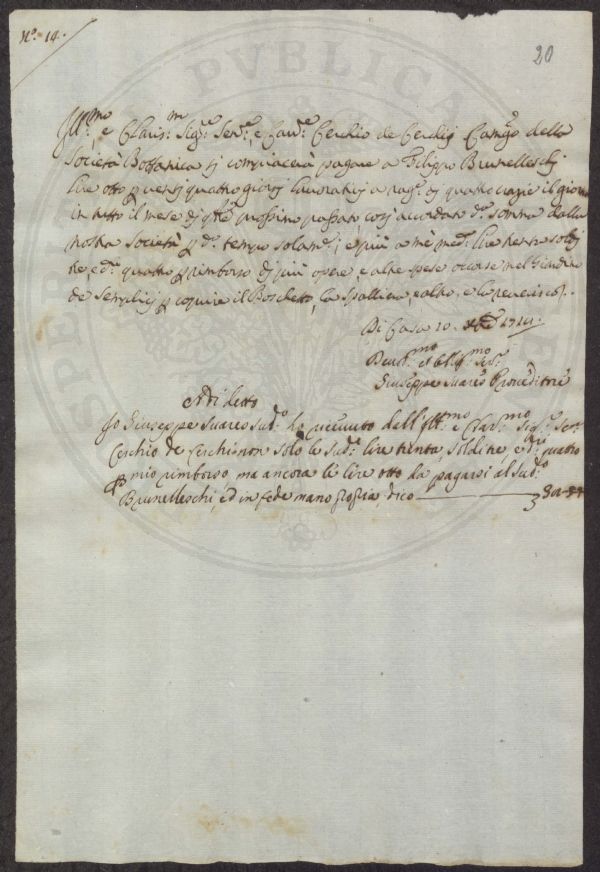 N.º 14.
20
Ill.mo, e Claris.m Sig.re Sen.re, e Cav.re Cerchio de Cerchij Camg.o della
Società Bottanica si compiacerà pagare a Filippo Brunelleschj
lire otto p ventj quattro giorni lavorativj a rag.e dj quattro crazie il giorno
in tutto il mese dj prossimo passato, cosj accordato d.a somma dalla
nostra Società p d.o tempo solam.te; e più a me med.o lire trenta soldj
tre e d.ri quattro p rimborso dj più opere e altre spese occorse nel Giardino
de Semplicj p cuprire il Boschetto, la Spalliera, e altro, e
Di Casa 10. 1714.
Dev.mo et Obbl.mo Ser.re
Giuseppe Suares Proveditore
Adi detto
Io Giuseppe Suares Sud.o ho ricevuto dell'Ill.mo e Clar.mo Sig.re Sen.re
Cerchio de Cerchi non solo le Sud.e lire trenta, soldi tre, e d.ri quatro
p mio rimborso, ma ancora le lire otto da pagarsi al Sud.o
Brunelleschi, ed in fede mano propria, dico
PVBLICA